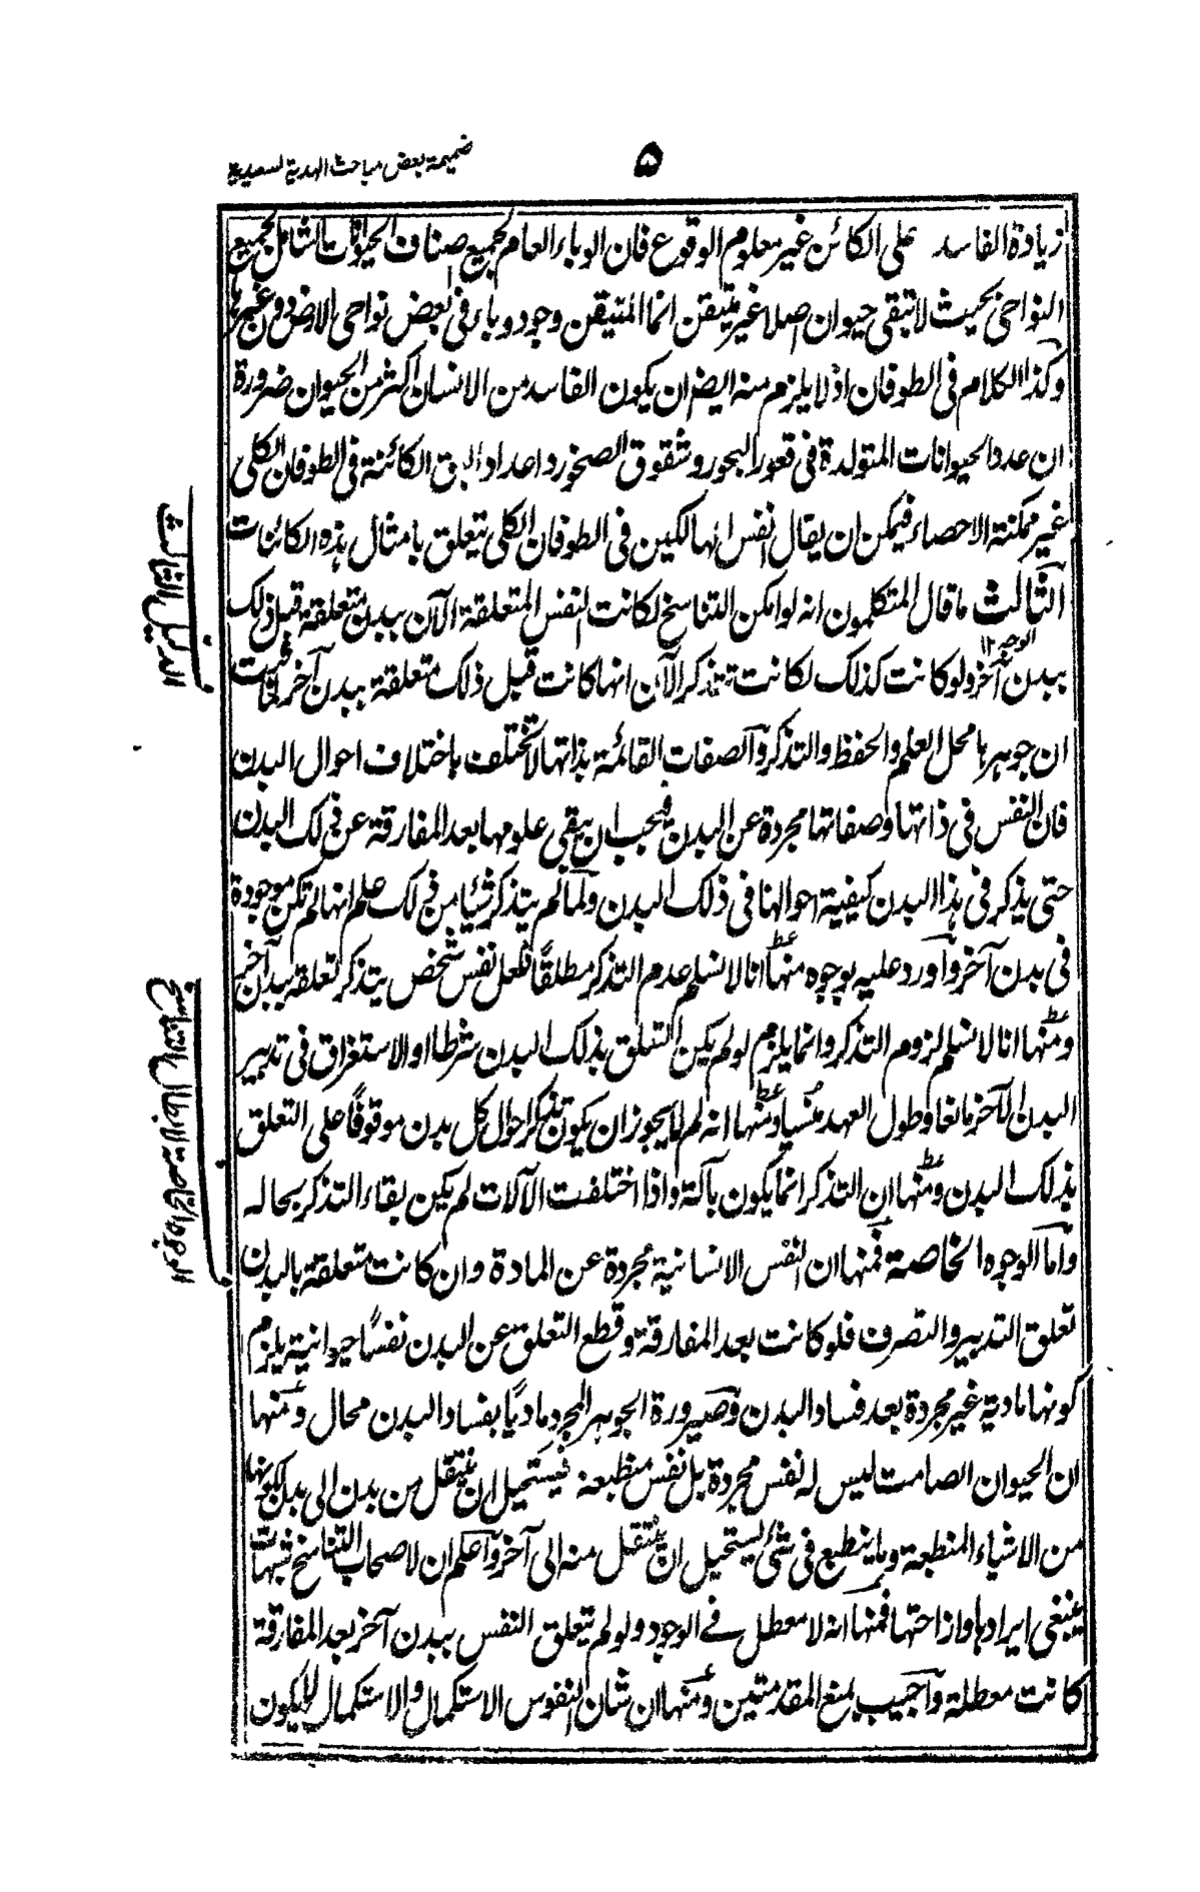 ضميمة بعض مباحث الهدية السعيدية
۵
زيادة الفاسد على الكائن غير معلوم الوقوع فان الوباء العام لجميع اصناف الحيوانات الشامل لجميع
النواحى بحيث لا تبقى حيوان اصلا غير متيقن انما المتيقن وجود وباء فى بعض نواحى الارض دون غيرها
وكذا الكلام فى الطوفان اذ لا يلزم منه ايضا ان يكون الفاسد من الانسان اكثر من الحيوان ضرورة
ان عدد الحيوانات المتولدة فى قعور البحور وشقوق الصخور واعداد البق الكائنة فى الطوفان الكلى
غير ممكنة الاحصاء فيمكن ان يقال نفس الهالكين فى الطوفان الكلى يتعلق بامثال هذه الكائنات
الثالث ما قال المتكلمون انه لو امكن التناسخ لكانت النفس المتعلقة الآن ببدن متعلقة قبل ذلك
ببدن آخر ولو كانت كذلك لكانت تتذكر الآن انها كانت قبل ذلك متعلقة ببدن آخر لما ثبت
ان جوهرها محل العلم والحفظ والتذكر والصفات القائمة بذاتها لا تختلف باختلاف احوال البدن
فان النفس فى ذاتها وصفاتها مجردة عن البدن فيجب ان يبقى علومها بعد المفارقة عن ذلك البدن
حتى يذكر فى هذا البدن كيفية احوالها فى ذلك البدن ولما لم يتذكر شيئا من ذلك علم انها لم تكن موجودة
فى بدن آخر واورد عليه بوجوه منها انا لا نسلم عدم التذكر مطلقًا فلعل نفس شخص يتذكر تعلقه ببدن آخر
ومنها انا لا نسلم لزوم التذكر وانما يلزم لو لم يكن التعلق بذلك البدن شرطا او الاستغراق فى تدبير
البدن الآخر مانعا وطول العهد منسيا ومنها انه لم لا يجوز ان يكون تذكر احوال كل بدن موقوفًا على التعلق
بذلك البدن ومنها ان التذكر انما يكون بآلة واذا اختلفت الآلات لم يكن بقاء التذكر بحاله
واما الوجوه الخاصة فمنها ان النفس الانسانية مجردة عن المادة وان كانت متعلقة بالبدن
تعلق التدبير والتصرف فلو كانت بعد المفارقة وقطع التعلق عن البدن نفسًا حيوانية يلزم
كونها مادية غير مجردة بعد فساد البدن وصيرورة الجوهر المجرد ماديًا بفساد البدن محال ومنها
ان الحيوان الصامت ليس له نفس مجردة بل نفس منطبعة فيستحيل ان ينتقل من بدن الى بدن لكونها
من الاشياء المنطبعة وما ينطبع فى شئ يستحيل ان ينتقل منه الى آخر واعلم ان لاصحاب التناسخ شبهات
ينبغى ايرادها وازاحتها فمنها انه لا معطل فى الوجود ولو لم يتعلق النفس ببدن آخر بعد المفارقة
كانت معطلة واجيب بمنع المقدمتين ومنها ان شان النفوس الاستكمال والاستكمال لا يكون
الدليل الثالث
الوجوه الخاصة لابطال التناسخ